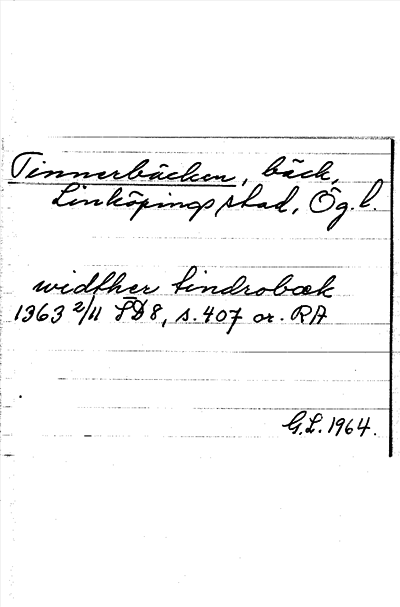 Tinnerbäcken, bäck,
Linköpings stad, Ög. l.
widther tindrobæk
1363 2/11 SD 8, s. 407 or. RA
G.L. 1964.